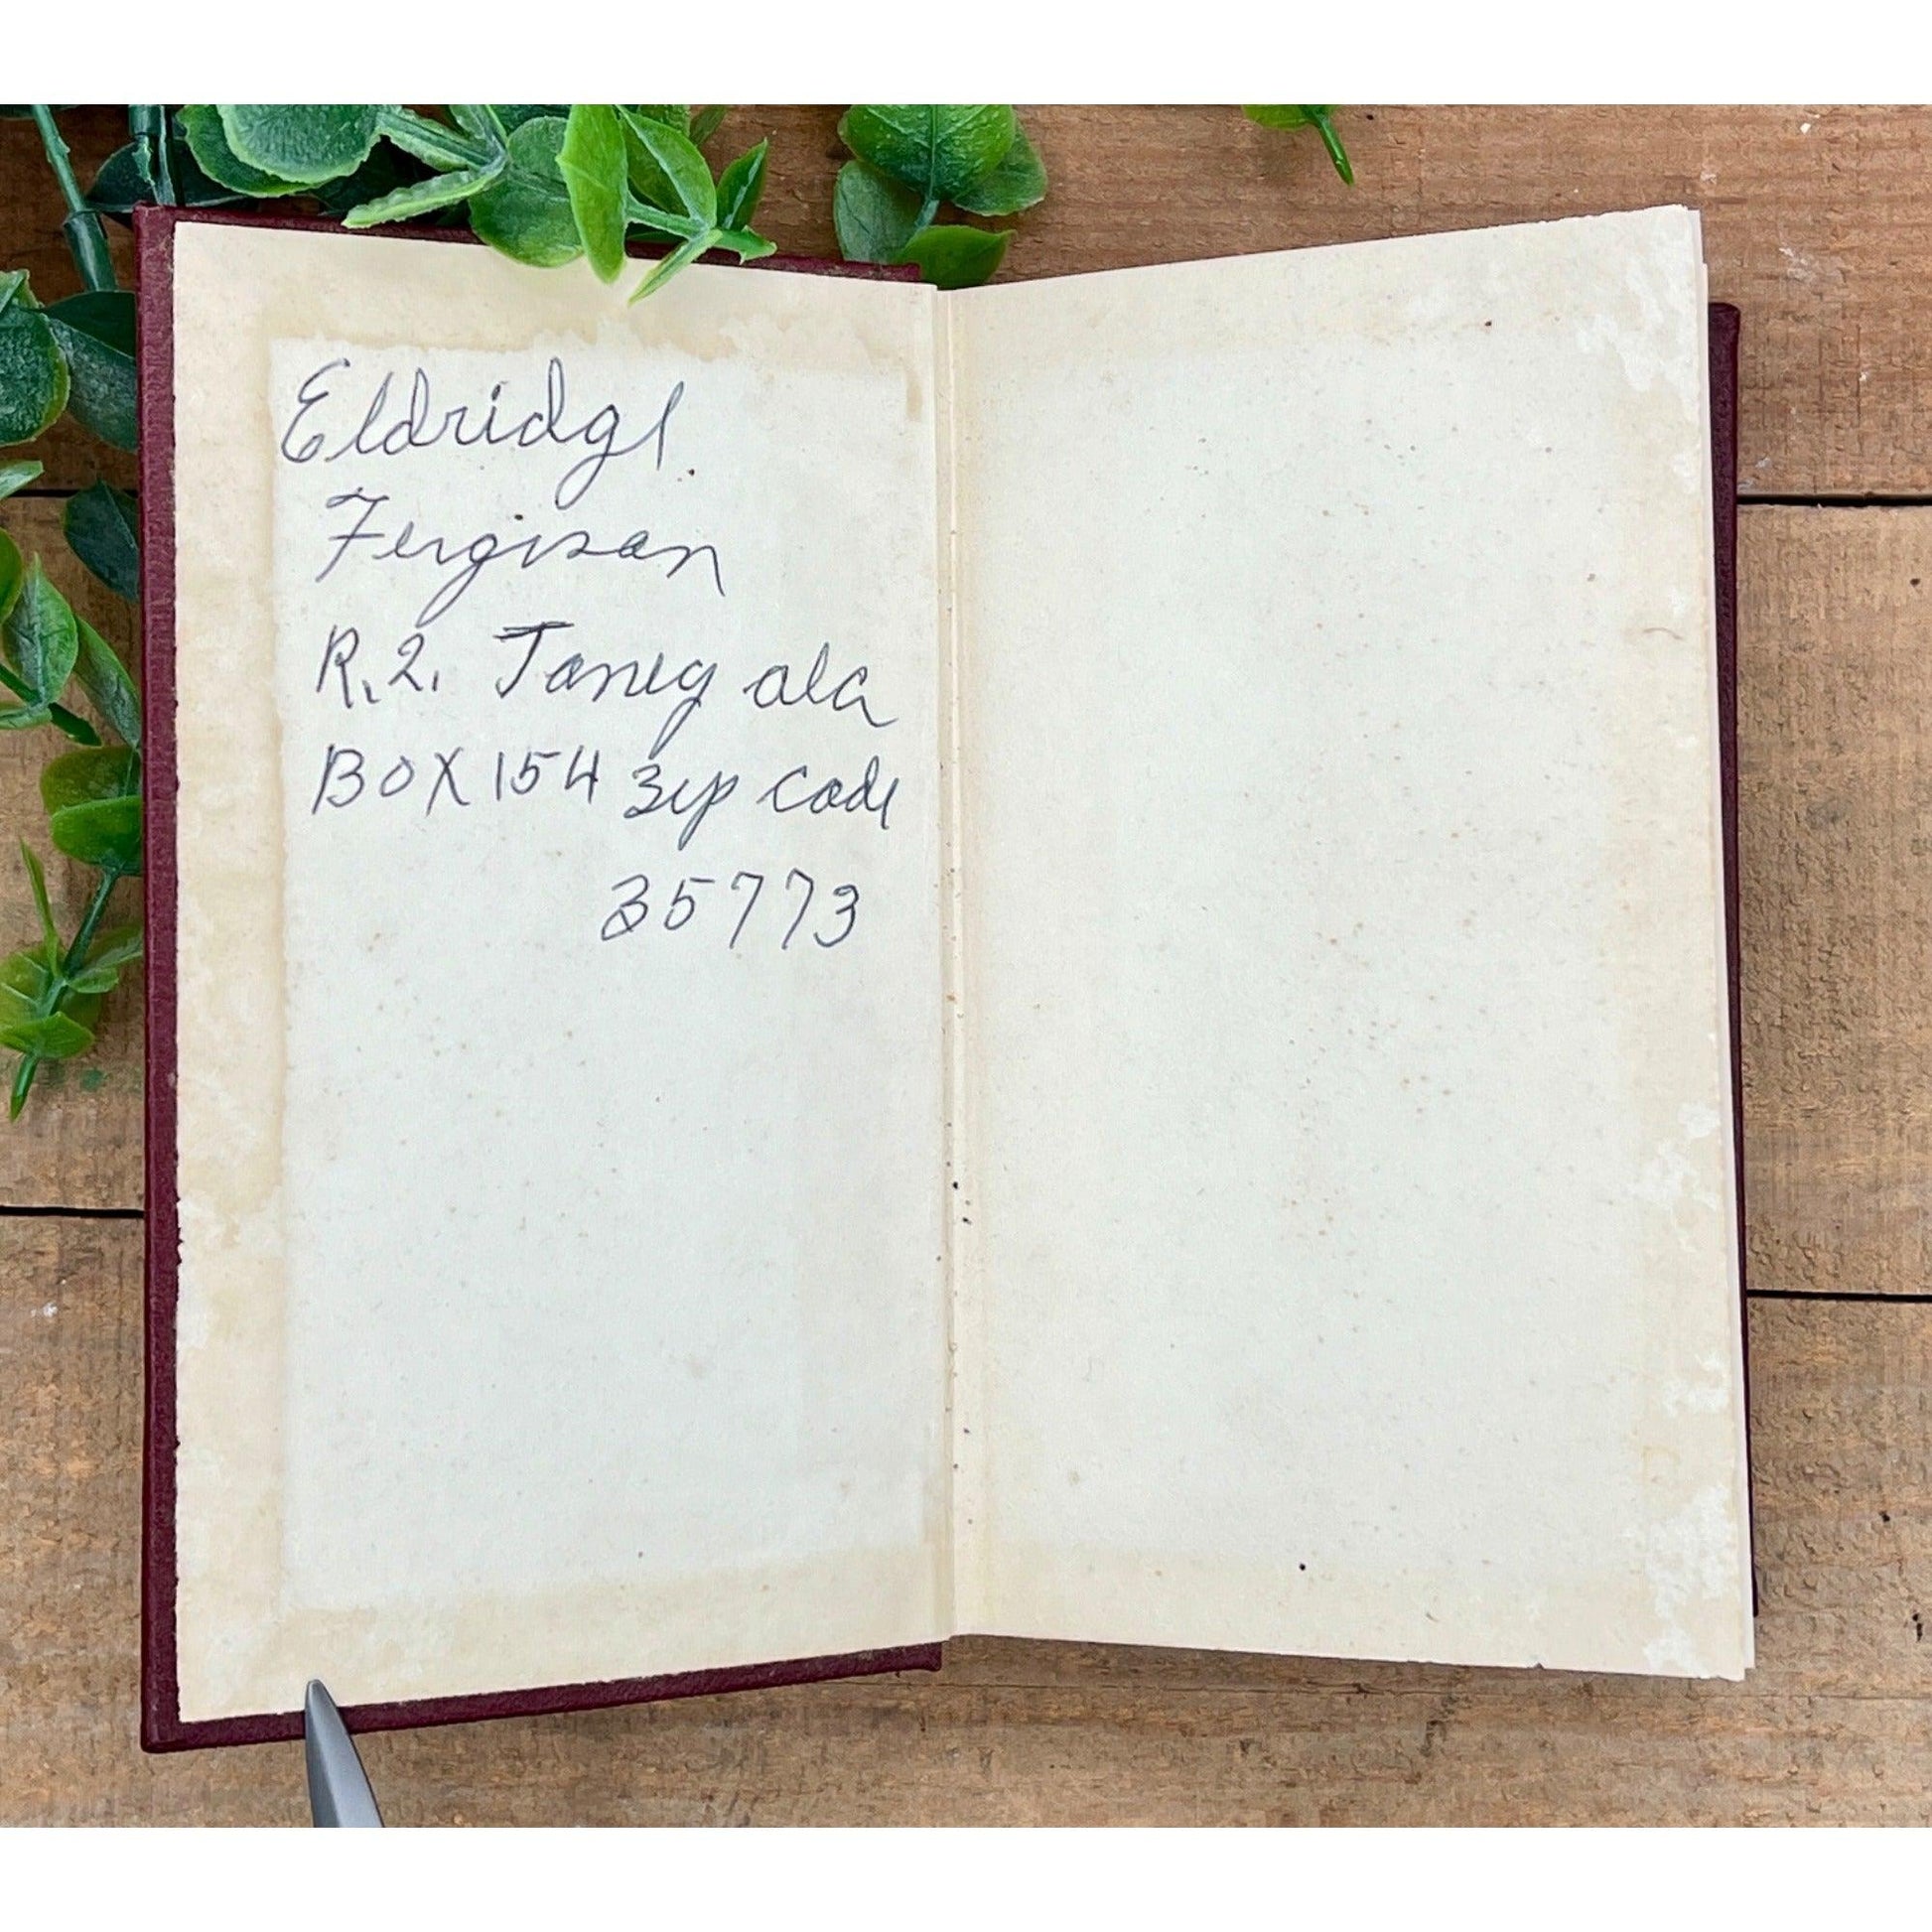 Eldridge
Ferguson
R.2. Toney ala
BOX 154 zip code
35773